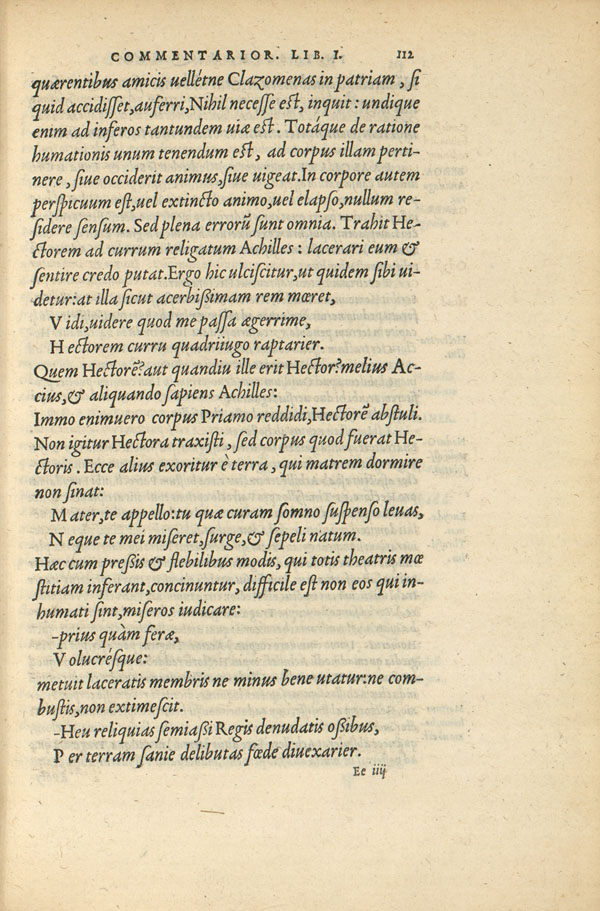 COMMENTARIOR. LIB. I. 112
quærentibus amicis uellétne Clazomenas in patriam, si
quid accidisset,auferri,Nihil necesse est, inquit: undique
enim ad inferos tantundem uiæ est. Totáque de ratione
humationis unum tenendum est, ad corpus illam perti-
nere, siue occiderit animus,siue uigeat.In corpore autem
perspicuum est,uel extincto animo,uel elapso,nullum re-
sidere sensum. Sed plena errorũ sunt omnia. Trahit He-
ctorem ad currum religatum Achilles: lacerari eum &
sentire credo putat.Ergo hic ulciscitur,ut quidem sibi ui-
detur:at illa sicut acerbißimam rem mœret,
V idi,uidere quod me passa ægerrime,
H ectorem curru quadriiugo raptarier.
Quem Hectorẽ?aut quandiu ille erit Hector?melius Ac-
cius,& aliquando sapiens Achilles:
Immo enimuero corpus Priamo reddidi,Hectorẽ abstuli.
Non igitur Hectora traxisti, sed corpus quod fuerat He-
ctoris. Ecce alius exoritur è terra, qui matrem dormire
non sinat:
M ater,te appello:tu quæ curam somno suspenso leuas,
N eque te mei miseret,surge,& sepeli natum.
Hæc cum preßis & flebilibus modis, qui totis theatris mœ
stitiam inferant,concinuntur, difficile est non eos qui in-
humati sint,miseros iudicare:
-prius quàm feræ,
V olucrésque:
metuit laceratis membris ne minus bene utatur:ne com-
bustis,non extimescit.
-Heu reliquias semiaßi Regis denudatis oßibus,
P er terram sanie delibutas fœde diuexarier.
Ee iiij